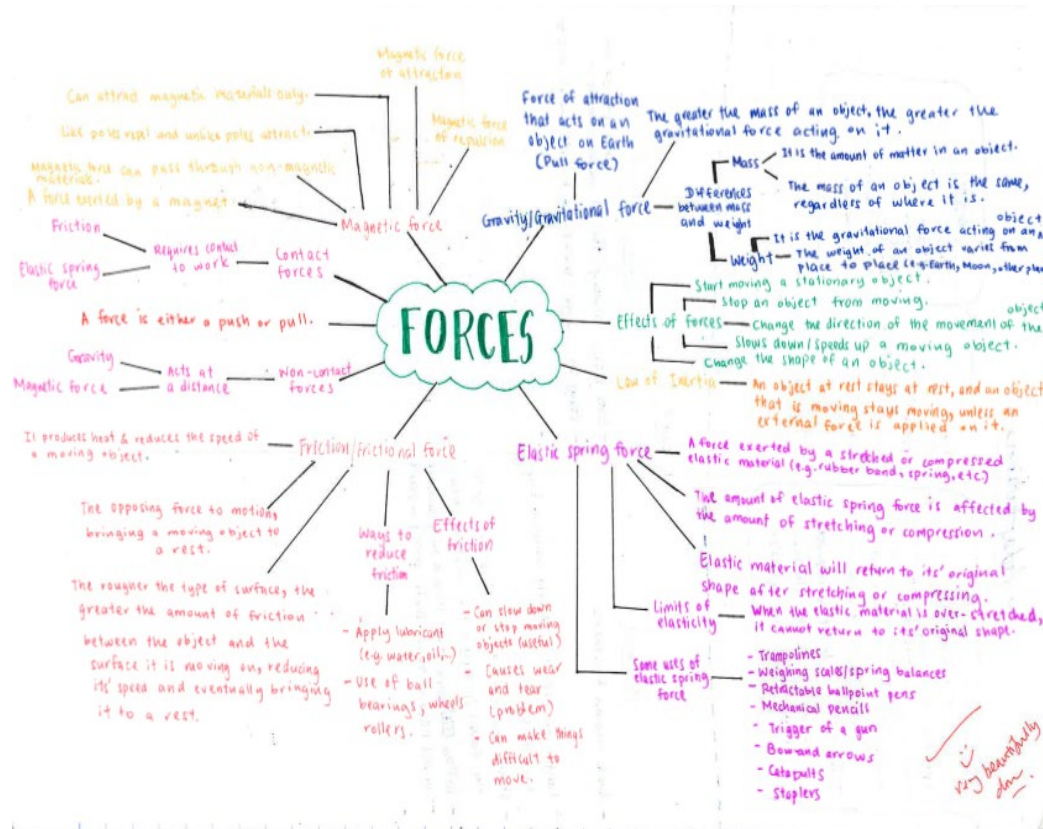 FORCES
Magnetic force
of attraction
Can attract magnetic materials only.
Like poles repel and unlike poles attract.
Magnetic force
of repulsion
Magnetic force can pass through non-magnetic
materials.
A force exerted by a magnet.
Magnetic force
Friction
Elastic spring
force
Requires contact
to work
Contact
forces
A force is either a push or pull.
Gravity
Magnetic force
Acts at
a distance
Non-contact
forces
Friction/frictional force
It produces heat & reduces the speed of
a moving object.
The opposing force to motion,
bringing a moving object to
a rest.
The rougher the type of surface, the
greater the amount of friction
between the object and the
surface it is moving on, reducing
its' speed and eventually bringing
it to a rest.
Ways to
reduce
friction
- Apply lubricant
(e.g. water, oil,...)
- Use of ball
bearings, wheels
rollers.
Effects of
friction
- Can slow down
or stop moving
objects (useful)
- Causes wear
and tear
(problem)
- Can make things
difficult to
move.
Gravity/Gravitational force
Force of attraction
that acts on an
object on Earth
(Pull force)
The greater the mass of an object, the greater the
gravitational force acting on it.
Differences
between mass
and weight
Mass
It is the amount of matter in an object.
The mass of an object is the same,
regardless of where it is.
Weight
object
It is the gravitational force acting on an
The weight of an object varies from
place to place (e.g. Earth, Moon, other
Effects of forces
Start moving a stationary object.
Stop an object from moving.
object
Change the direction of the movement of the
Slows down/speeds up a moving object.
Change the shape of an object.
Law of Inertia
An object at rest stays at rest, and an object
that is moving stays moving, unless an
external force is applied on it.
Elastic spring force
A force exerted by a stretched or compressed
elastic material (e.g. rubber band, spring, etc)
The amount of elastic spring force is affected by
the amount of stretching or compression.
Elastic material will return to its' original
shape after stretching or compressing.
Limits of
elasticity
When the elastic material is over-stretched,
it cannot return to its' original shape.
Some uses of
elastic spring
force
- Trampolines
- Weighing scales/spring balances
- Retractable ballpoint pens
- Mechanical pencils
- Trigger of a gun
- Bow and arrows
- Catapults
- Staplers
very beautifully